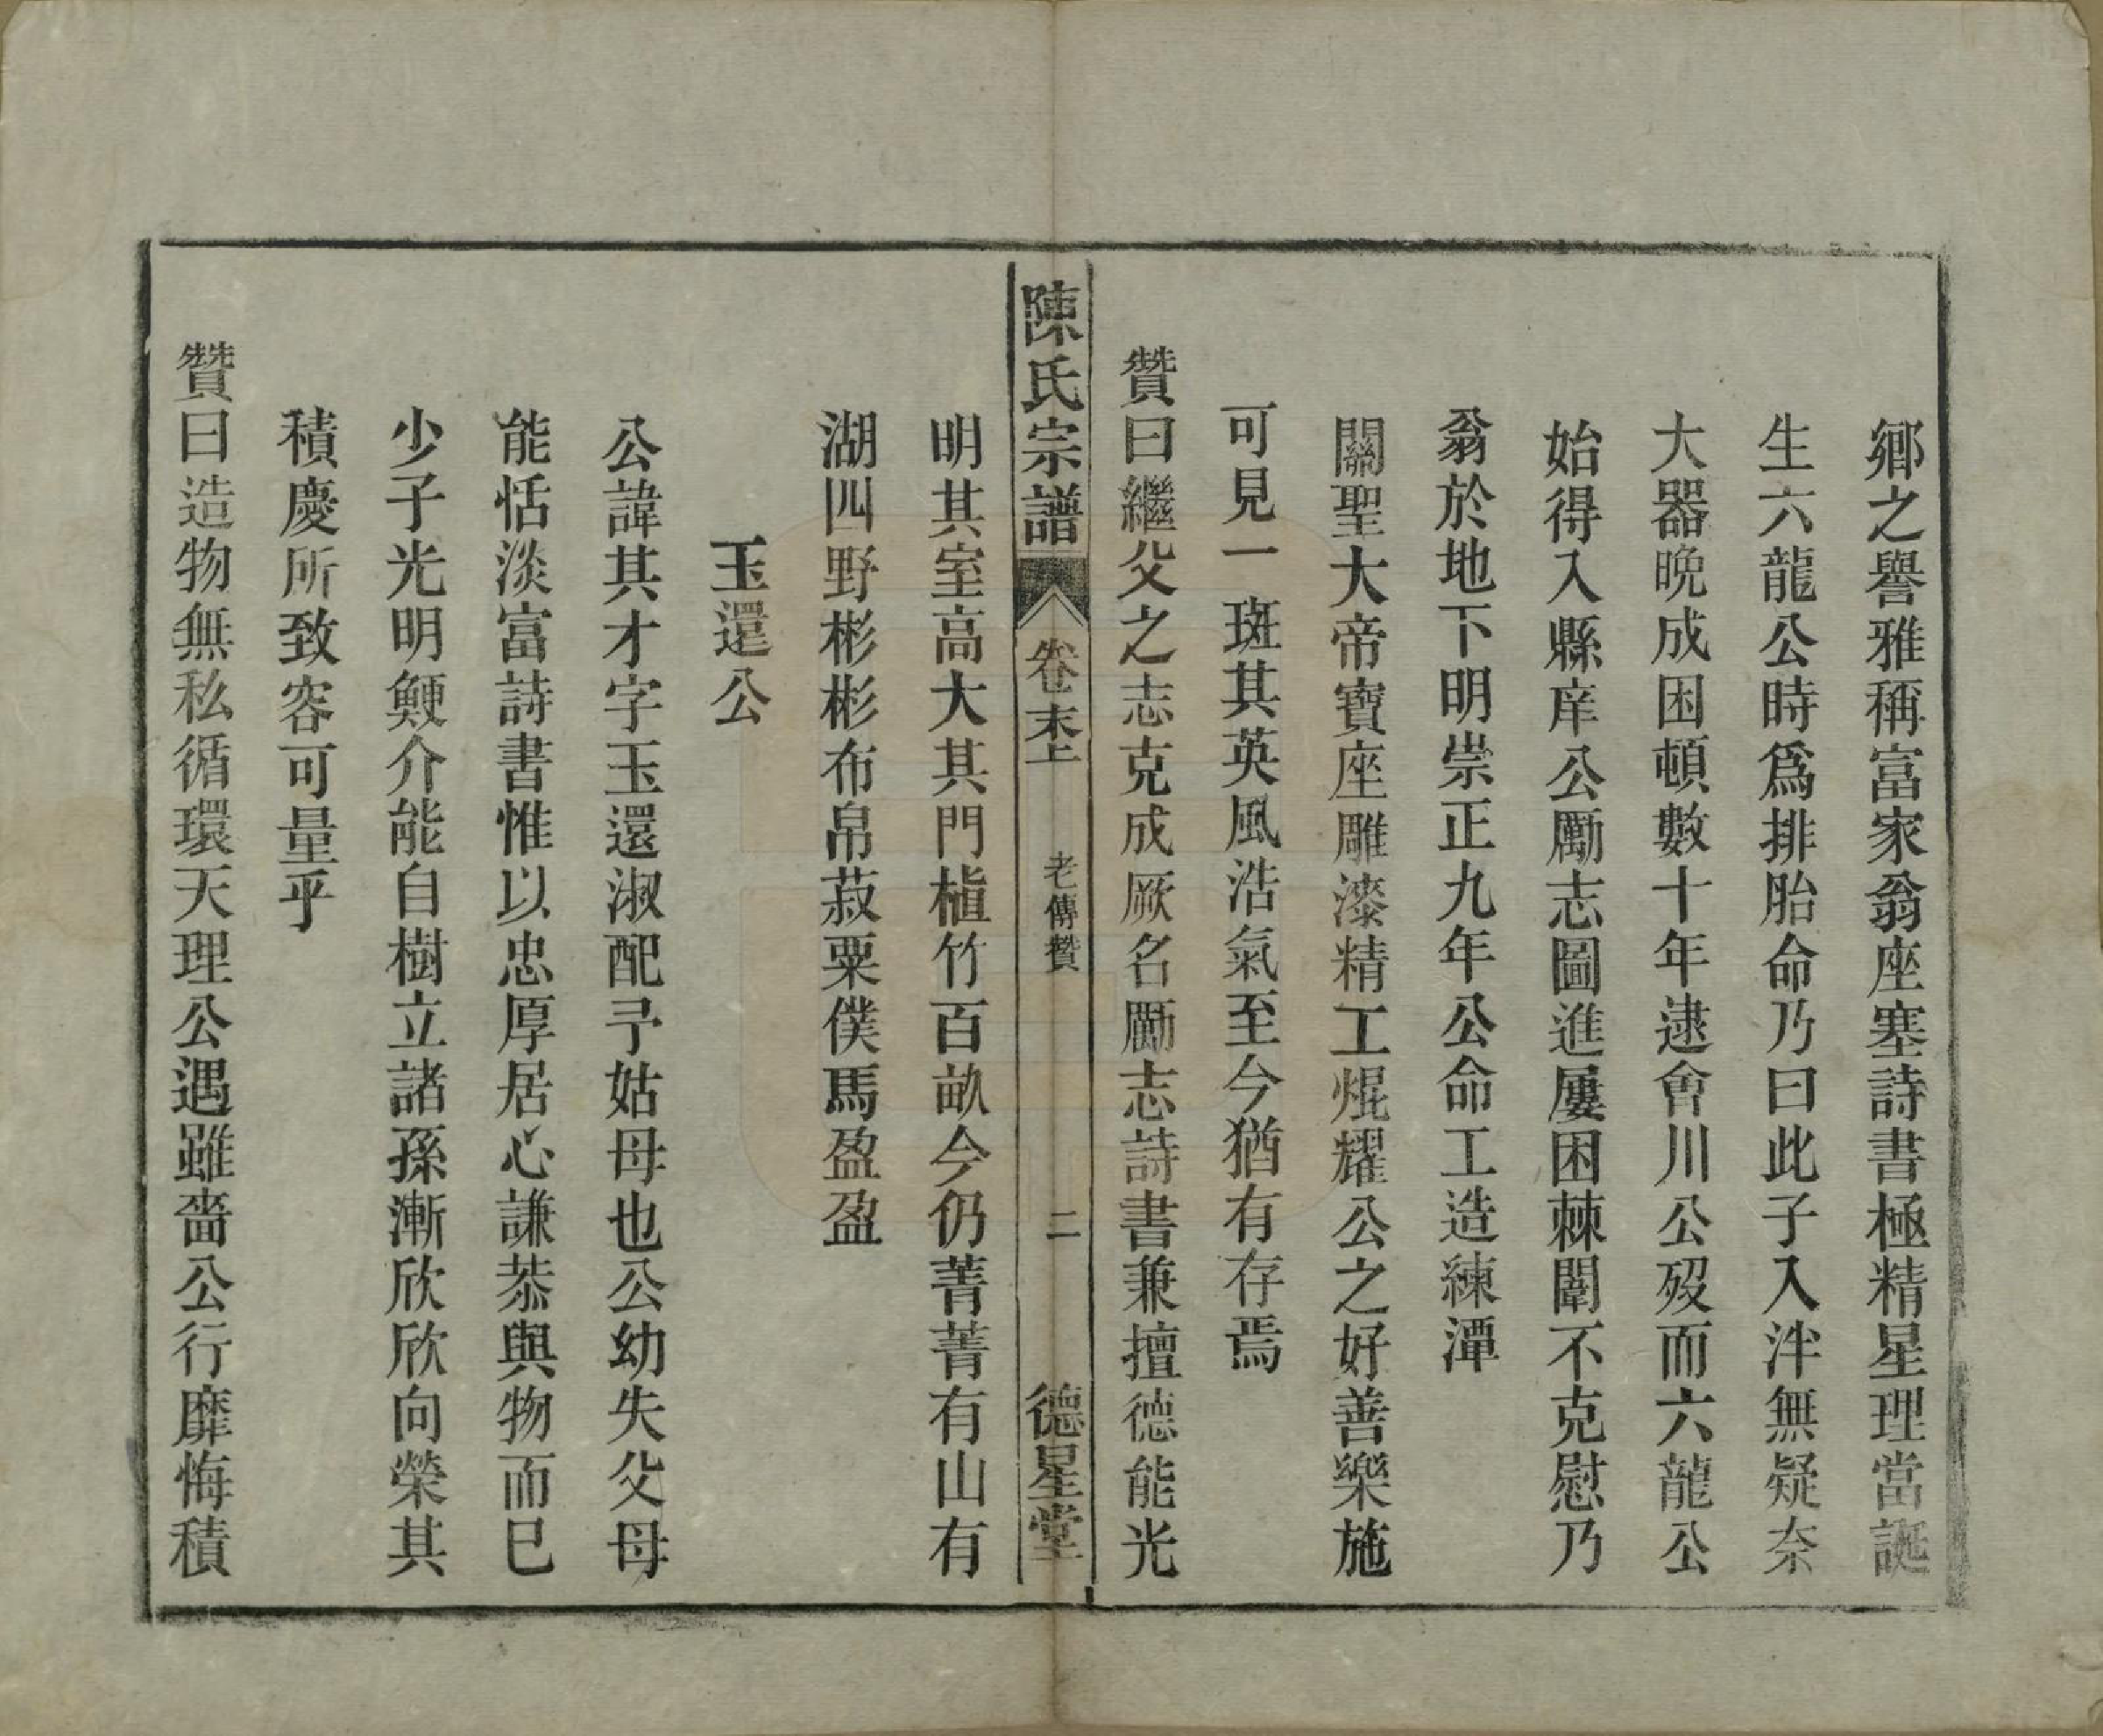 鄉之譽雅稱富家翁座塞詩書極精星理當誕
生六龍公時爲排胎命乃曰此子入泮無疑奈
大器晩成困頓數十年逮會川公歿而六龍公
始得入縣庠公勵志圖進屢困棘闈不克慰乃
翁於地下明崇正九年公命工造練潭
關聖大帝寶座雕漆精工焜耀公之好善樂施
可見一斑其英風浩氣至今猶有存焉
贊曰繼父之志克成厥名勵志詩書兼擅德能光
陳氏宗譜 卷末上 老傳贊 二 德星堂
明其室高大其門植竹百畝今仍菁菁有山有
湖四野彬彬布帛菽粟僕馬盈盈
玉還公
公諱其才字玉還淑配予姑母也公幼失父母
能恬淡富詩書惟以忠厚居心謙恭與物而已
少子光明鯁介能自樹立諸孫漸欣欣向榮其
積慶所致容可量乎
贊曰造物無私循環天理公遇雖嗇公行靡悔積